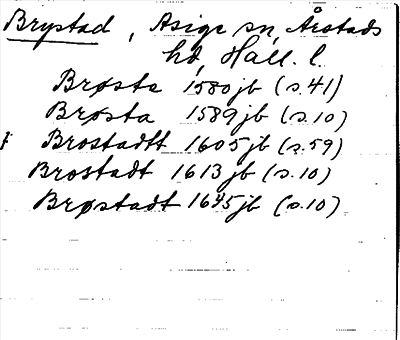 Brystad, Asige sn, Årstads
hd, Hall. l.
Brøsta 1580jb (s.41)
Brøsta 1589jb (s.10)
Brostadtt 1605jb (s.59)
Brostadt 1613jb (s.10)
Brøstadt 1645jb (s.10)